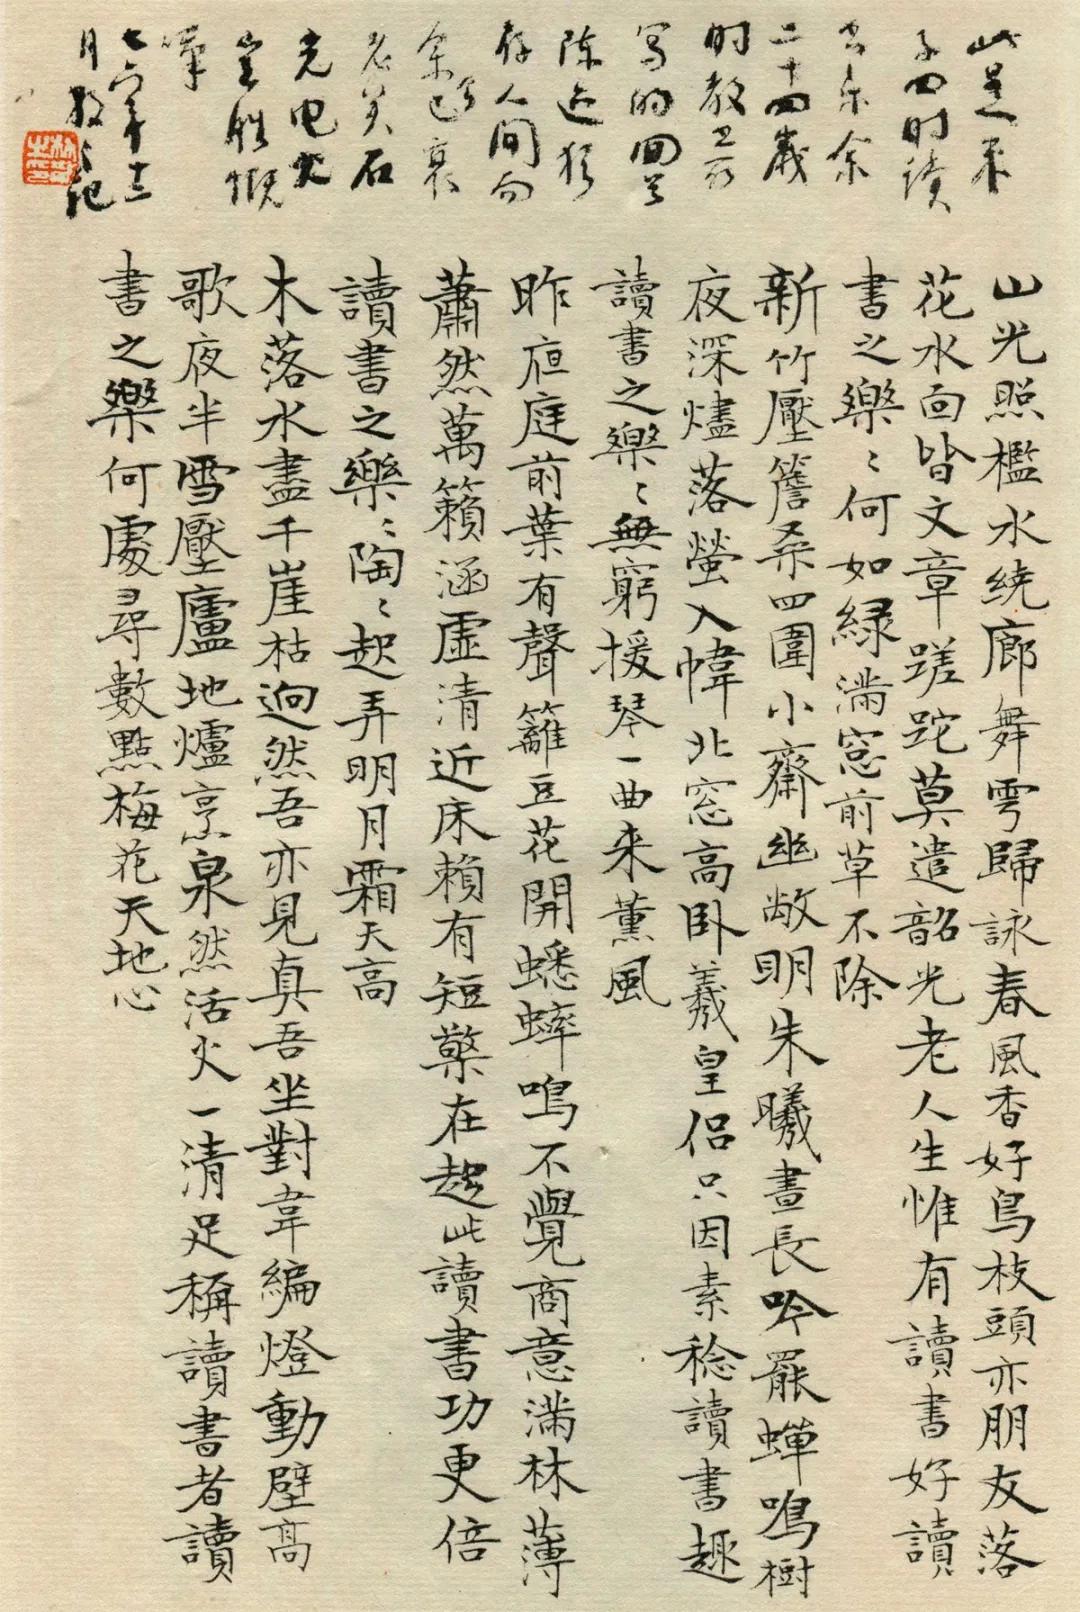 此是朱
子四时读
书乐余
二十四岁
时教
写的回首
陈迹犹
存人间而
余已衰
老矣石
光电火
岂胜慨
嘆
七六年十二
月散之记
山光照檻水繞廊舞雩歸詠春風香好鳥枝頭亦朋友落
花水面皆文章蹉跎莫遣韶光老人生惟有讀書好讀
書之樂〻何如緑滿窓前草不除
新竹壓簷桑四圍小齋幽敞明朱曦晝長吟罷蟬鳴樹
夜深燼落螢入幃北窓高卧羲皇侶只因素稔讀書趣
讀書之樂〻無窮援琴一曲来薰風
昨夜庭前葉有聲籬豆花開蟋蟀鳴不覺商意滿林薄
蕭然萬籟涵虛清近床賴有短檠在趁此讀書功更倍
讀書之樂〻陶〻起弄明月霜天高
木落水盡千崖枯迥然吾亦見真吾坐對韋編燈動壁高
歌夜半雪壓廬地爐烹泉然活火一清足稱讀書者讀
書之樂何處尋數點梅花天地心